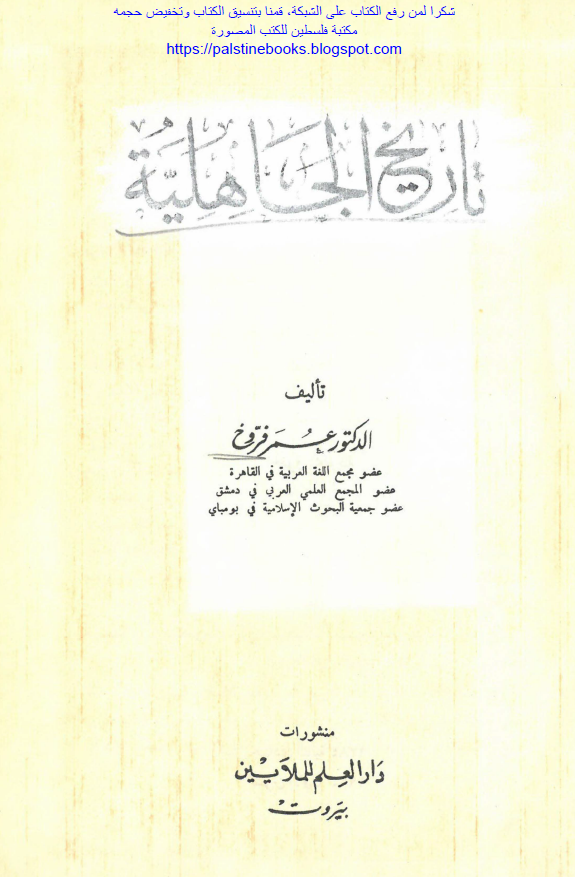 شكرا لمن رفع الكتاب على الشبكة، قمنا بتنسيق الكتاب وتخفيض حجمه
مكتبة فلسطين للكتب المصورة
https://palstinebooks.blogspot.com
تاريخ الجَاهِليَّة
تأليف
الدكتور عُمَر فرّوخ
عضو مجمع اللغة العربية في القاهرة
عضو المجمع العلمي العربي في دمشق
عضو جمعية البحوث الإسلامية في بومباي
منشورات
دَار العِلم للمَلايِين
بَيروت